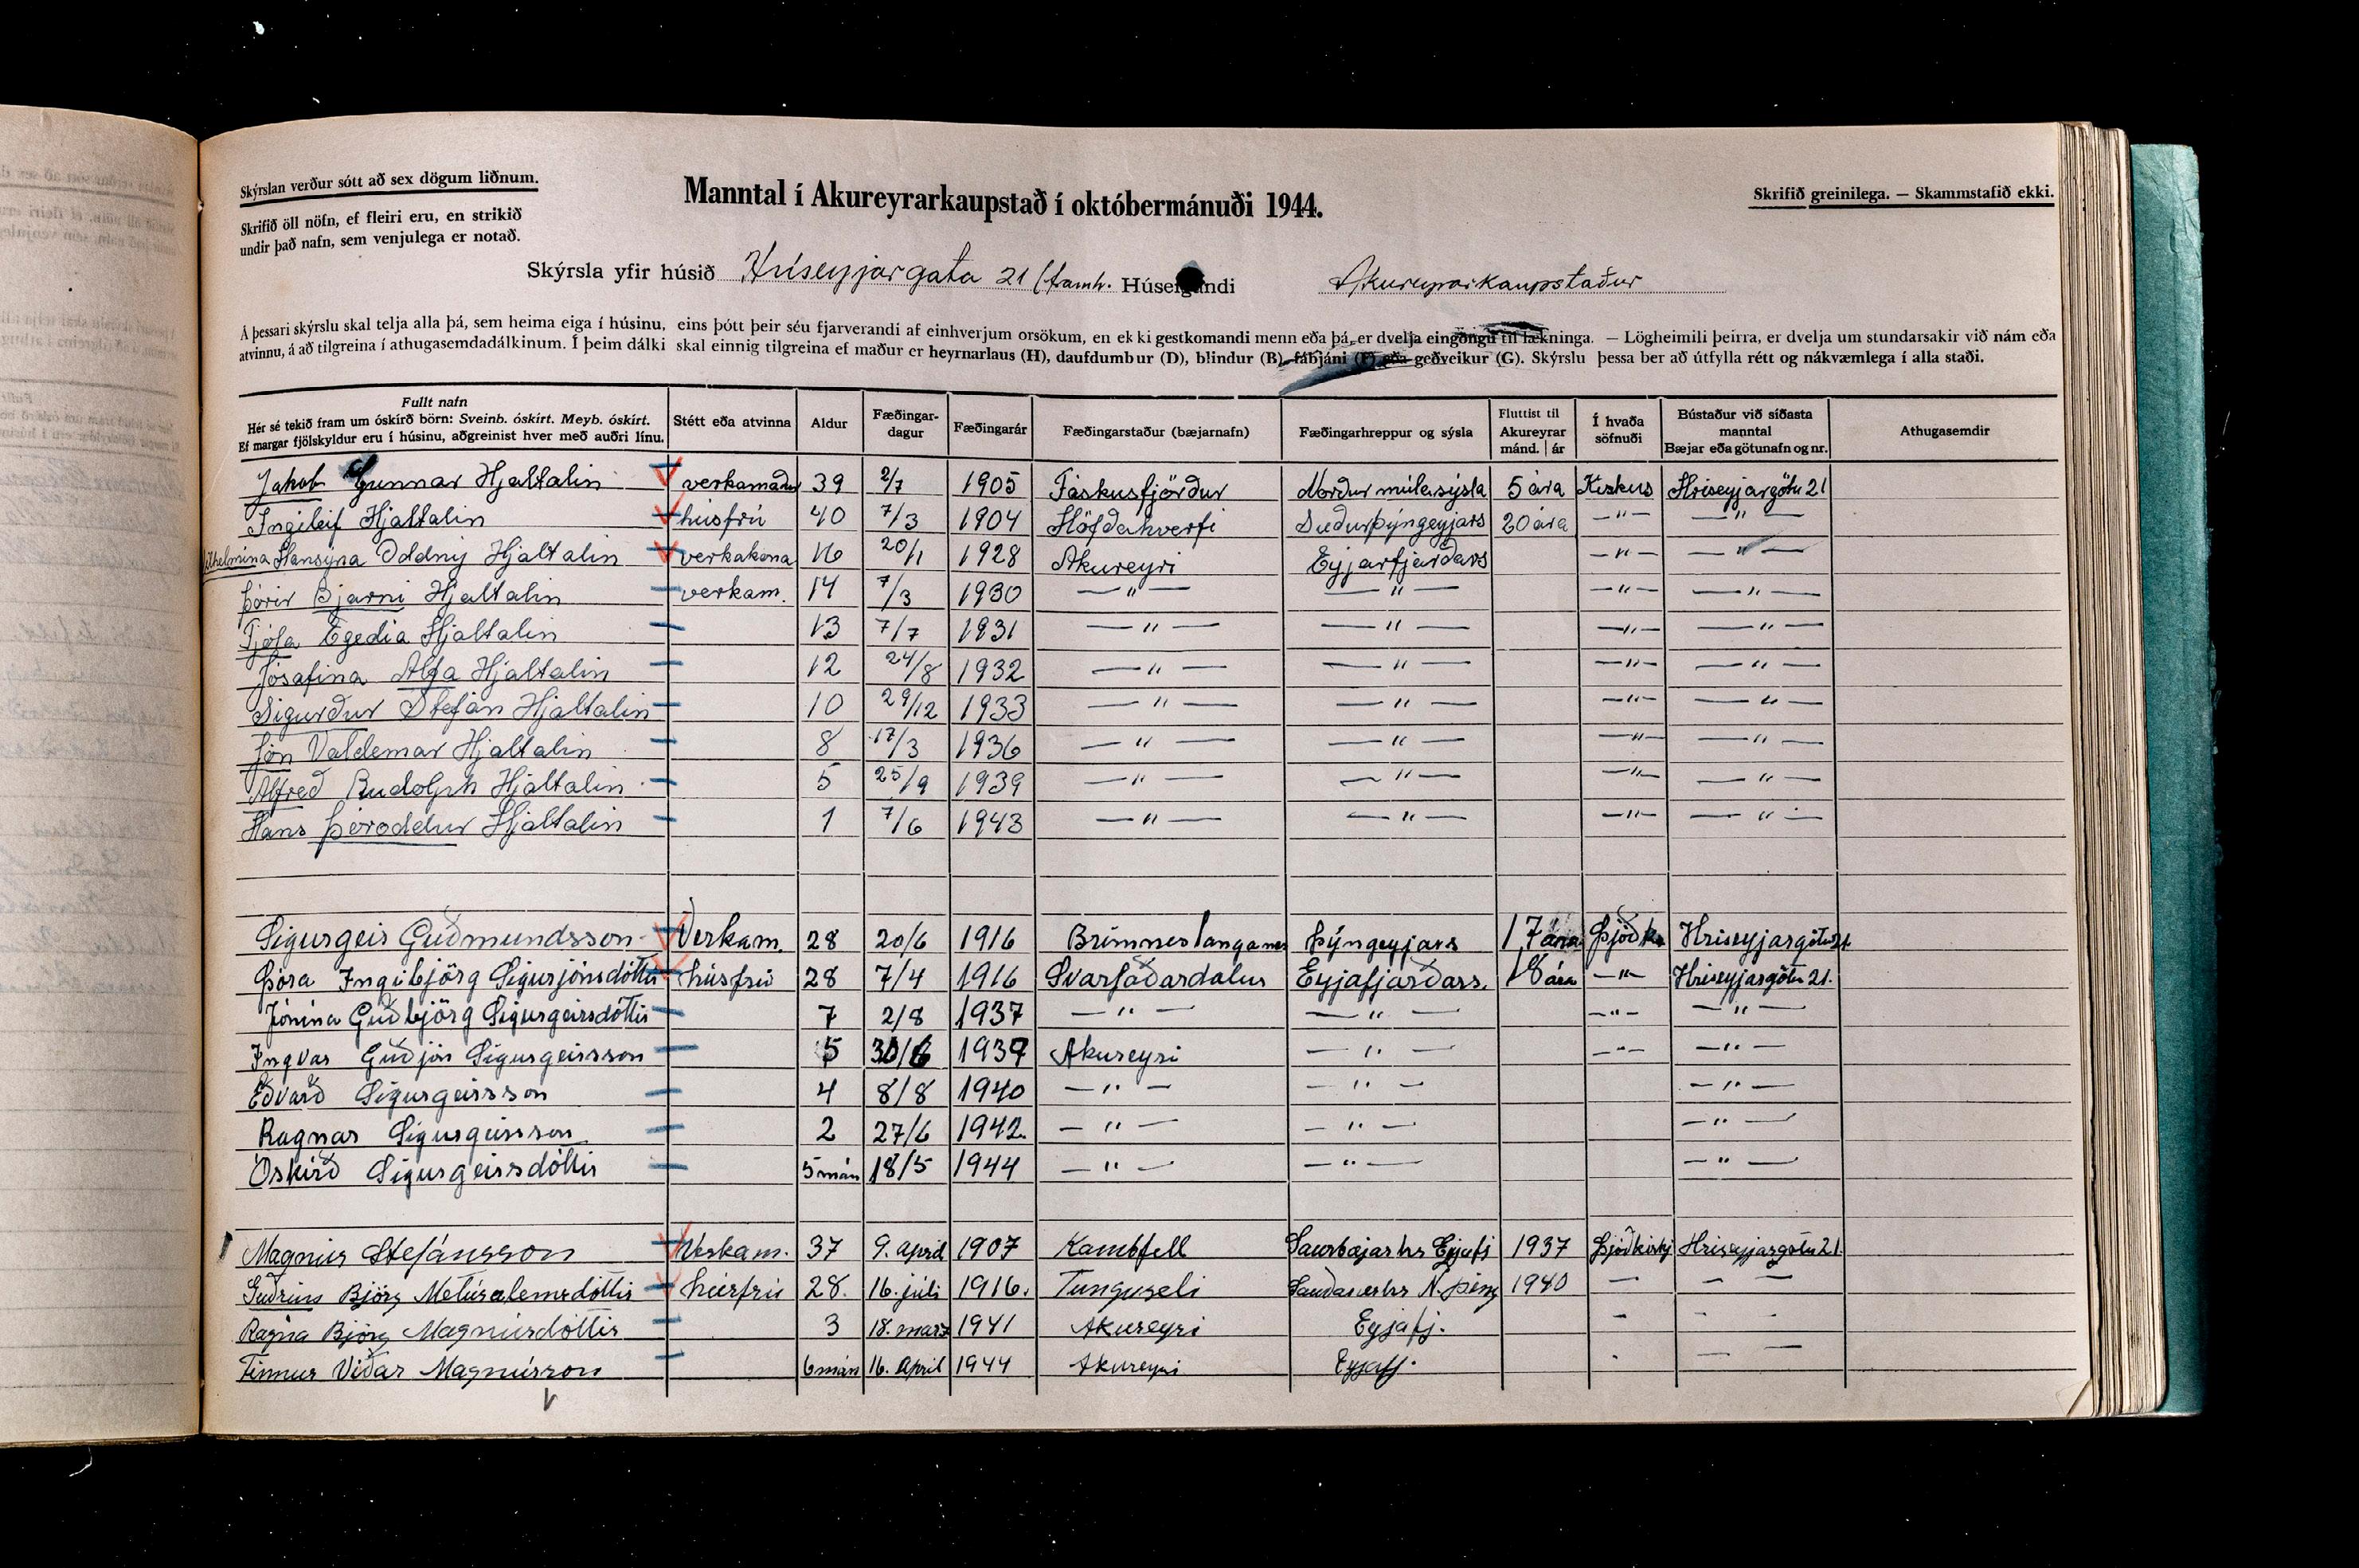 Skýrslan verður sótt að sex dögum liðnum.
Skrifið öll nöfn, ef fleiri eru, en strikið
undir það nafn, sem venjulega er notað.
Manntal í Akureyrarkaupstað í októbermánuði 1944.
Skrifið greinilega. — Skammstafið ekki.
Skýrsla yfir húsið Hríseyjargata 21 (framh. Húseigandi Akureyrarkaupstaður
Á þessari skýrslu skal telja alla þá, sem heima eiga í húsinu, eins þótt þeir séu fjarverandi af einhverjum orsökum, en ekki gestkomandi menn eða þá, er dvelja eingöngu til lækninga. — Lögheimili þeirra, er dvelja um stundarsakir við nám eða
atvinnu, á að tilgreina í athugasemdadálkinum. Í þeim dálki skal einnig tilgreina ef maður er heyrnarlaus (H), daufdumbur (D), blindur (B), fábjáni (F) eða geðveikur (G). Skýrslu þessa ber að útfylla rétt og nákvæmlega í alla staði.
Fullt nafn
Hér sé tekið fram um óskírð börn: Sveinb. óskírt. Meyb. óskírt.
Ef margar fjölskyldur eru í húsinu, aðgreinist hver með auðri línu.
Stétt eða atvinna
Aldur
Fæðingar-
dagur
Fæðingarár
Fæðingarstaður (bæjarnafn)
Fæðingarhreppur og sýsla
Fluttist til
Akureyrar
mánd. | ár
Í hvaða
söfnuði
Bústaður við síðasta
manntal
Bæjar eða götunafn og nr.
Athugasemdir
Jakob Gunnar Hjaltalin verkamaður 39 2/7 1905 Fáskusfjörður Norður múlasýsla 5 ára Kirkus Hríseyjargötu 21
Ingileif Hjaltalin húsfrú 40 7/3 1904 Höfðahverfi Suðurþýngeyjars 20 ára —"— —"—
Vilhelmína Hansýna Oddný Hjaltalin verkakona 16 20/1 1928 Akureyri Eyjarfjarðars —"— —"—
Þórir Bjarni Hjaltalin verkam. 14 7/3 1930 —"— —"— —"— —"—
Fjóla Egedia Hjaltalin 13 7/7 1931 —"— —"— —"— —"—
Jósafina Alfa Hjaltalin 12 24/8 1932 —"— —"— —"— —"—
Sigurður Stefán Hjaltalin 10 29/12 1933 —"— —"— —"— —"—
Jón Valdemar Hjaltalin 8 17/3 1936 —"— —"— —"— —"—
Alfreð Rudolph Hjaltalin 5 25/9 1939 —"— —"— —"— —"—
Hans Þóroddur Hjaltalin 1 7/6 1943 —"— —"— —"— —"—
Sigurgeir Guðmundsson Verkam. 28 20/6 1916 Brimnes langanes Þýngeyjars 17 ára Þjóðk Hríseyjargötu 21
Þóra Ingibjörg Sigurjónsdóttir húsfrú 28 7/4 1916 Svarfaðardalur Eyjafjarðars. 18 ára —"— Hríseyjargötu 21.
Jónína Guðbjörg Sigurgeirsdóttir 7 2/8 1937 —"— —"— —"— —"—
Ingvar Guðjón Sigurgeirsson 5 30/6 1939 Akureyri —"— —"— —"—
Eðvarð Sigurgeirsson 4 8/8 1940 —"— —"— —"—
Ragnar Sigurgeirsson 2 27/6 1942 —"— —"— —"—
Óskírð Sigurgeirsdóttir 5 mán 18/5 1944 —"— —"— —"—
Magnús Stefánsson Verkam. 37 9. apríl 1907 Kambfell Saurbæjarhr Eyjafj 1937 Þjóðkirkj Hríseyjargötu 21.
Guðrún Björg Metúsalemsdóttir húsfrú 28. 16. júlí 1916. Tunguseli Sauðaneshr N. Þing 1940 — — —
Ragna Björg Magnúsdóttir 3 18. marz 1941 Akureyri Eyjafj. - - —
Finnur Viðar Magnússon 6 mán 16. Apríl 1944 Akureyri Eyjafj. - — —